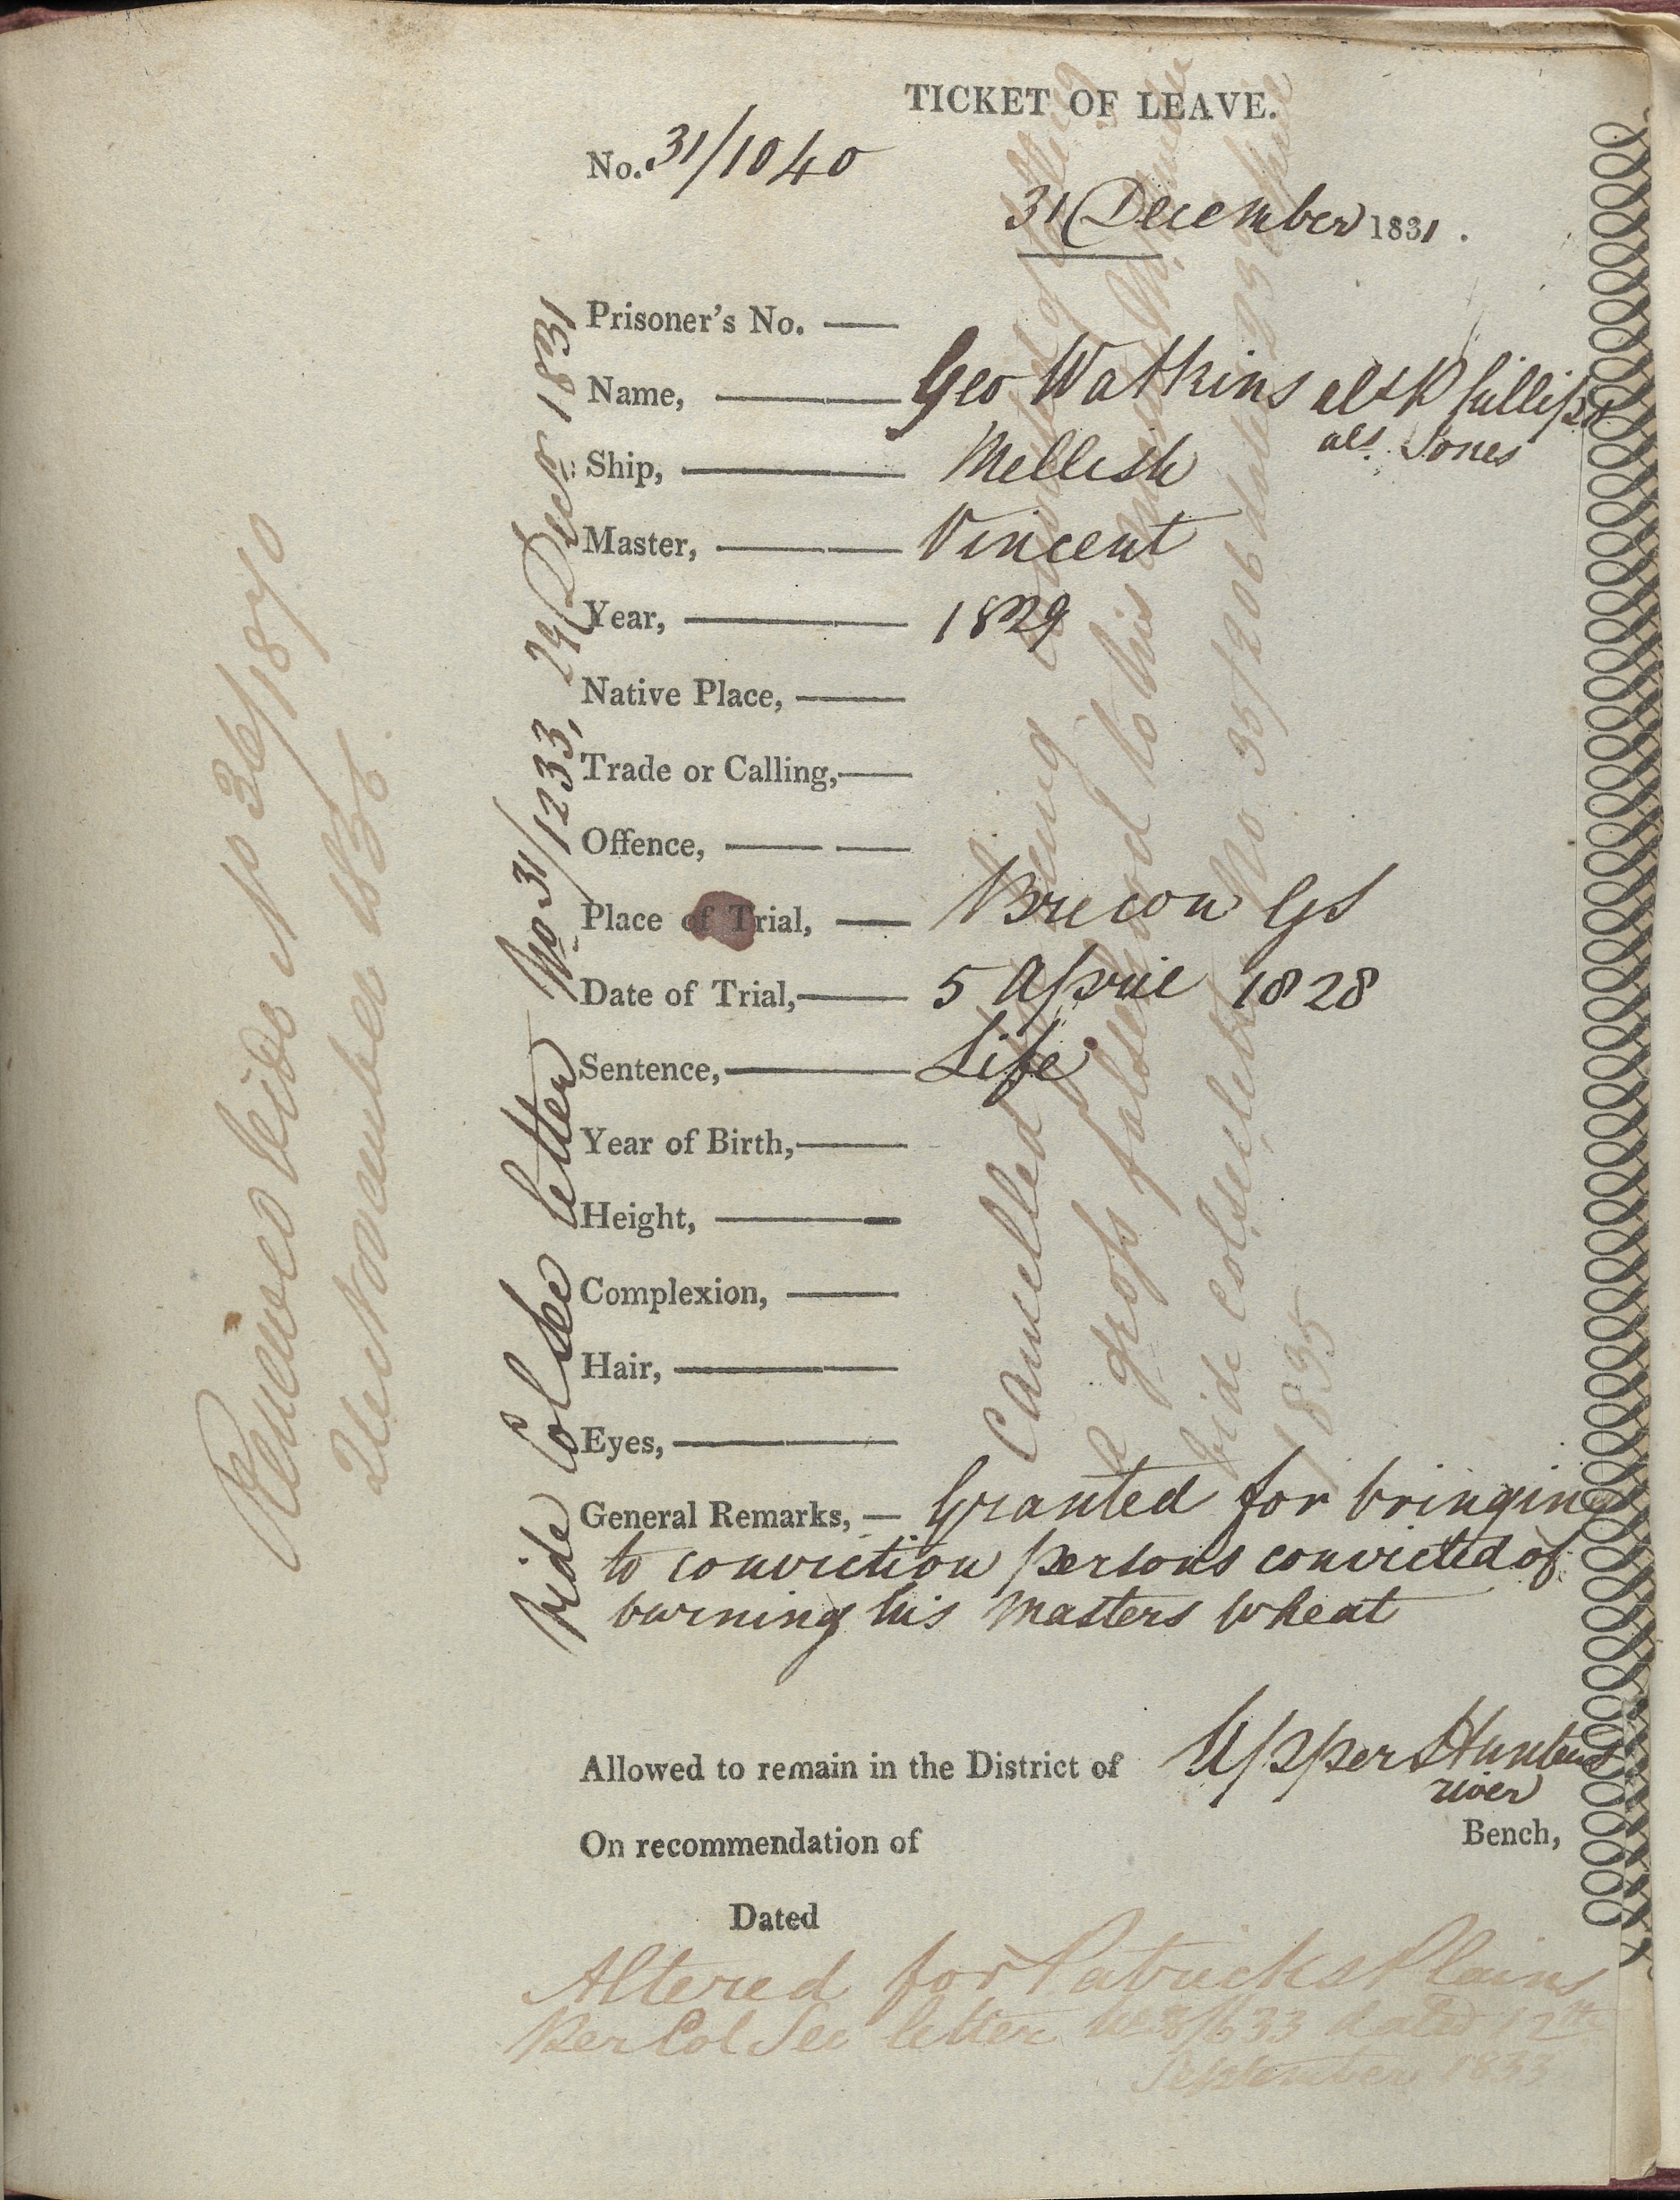 TICKET OF LEAVE.
No. 31/1040
31 December 1831.
Prisoner's No.
Name, Geo Watkins als Phillips
als. Jones
Ship, Mellish
Master, Vincent
Year, 1829
Native Place,
Trade or Calling,
Offence,
Place of Trial, Brecon GS
Date of Trial, 5 April 1828
Sentence, Life
Year of Birth,
Height,
Complexion,
Hair,
Eyes,
General Remarks, Granted for bringing
to conviction persons convicted of
burning his Masters wheat
Allowed to remain in the District of Upper Hunters
river
On recommendation of Bench,
Dated
Altered for Patricks Plains
Per Col Sec letter dated 12th
September 1833
Vide Col Sec letter No 31/1233, 29 Decr 1831
Renewed vide No 36/1870
November 183
Cancelled being
a gross falsehood to his
vide Col Sec letter No 35/206 dated 23
1835